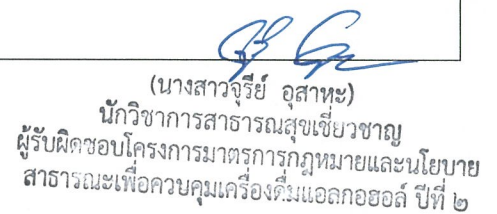 (นางสาวจุรีย์ อุสาหะ)
นักวิชาการสาธารณสุขเชี่ยวชาญ
ผู้รับผิดชอบโครงการมาตรการกฎหมายและนโยบาย
สาธารณะเพื่อควบคุมเครื่องดื่มแอลกอฮอล์ ปีที่ ๒